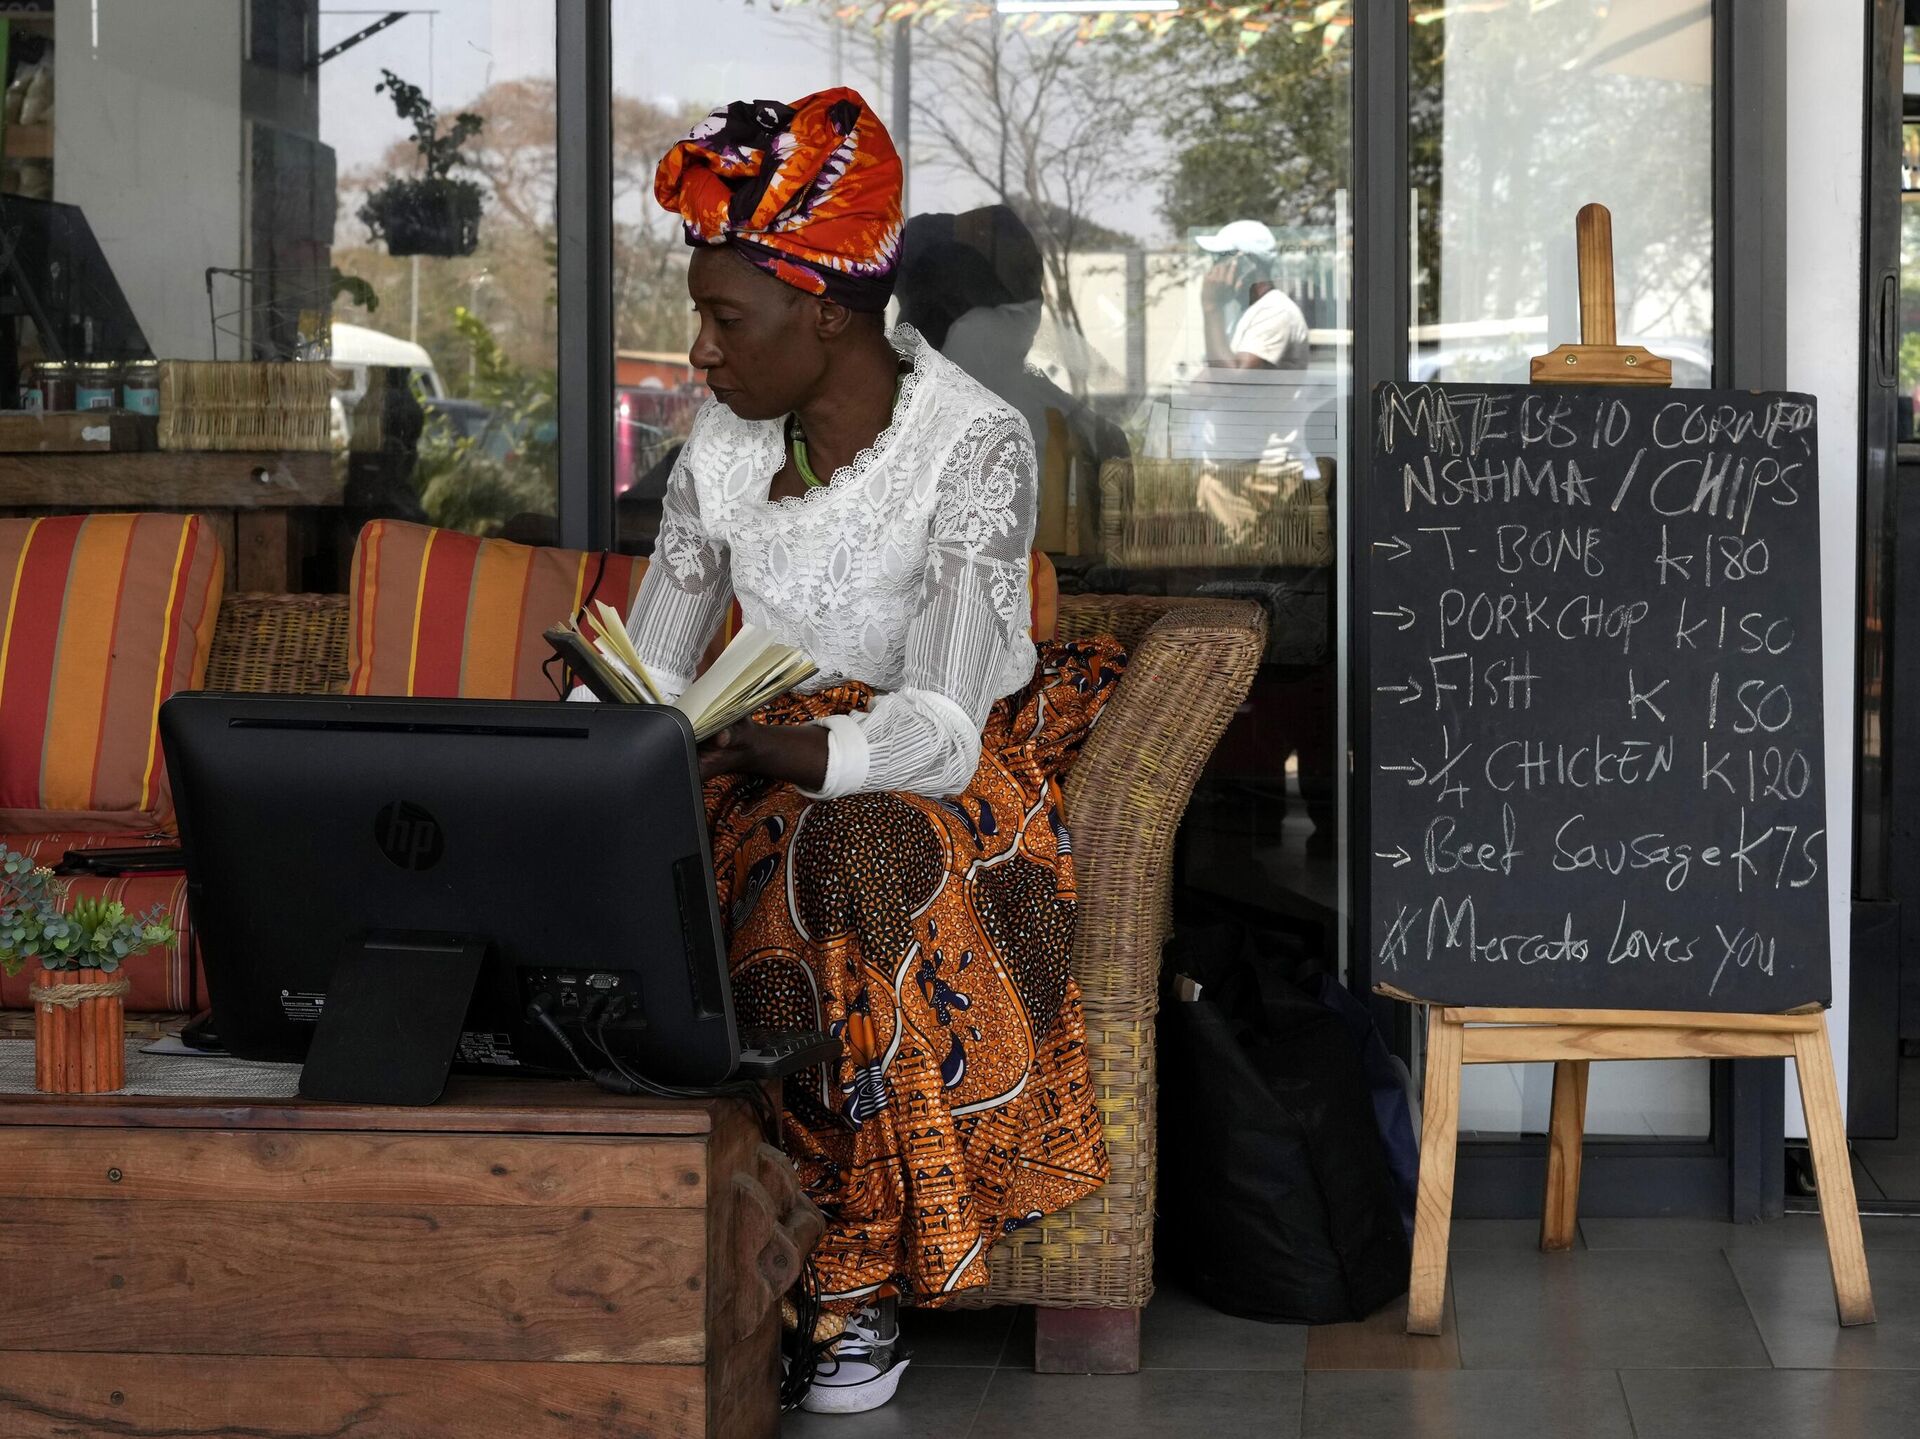 hp
MATEBETO CORNER
NSHIMA / CHIPS
→ T-BONE K180
→ PORK CHOP K150
→ FISH K 150
→ 1/4 CHICKEN K120
→ Beef Sausage K75
# Mercato Loves You